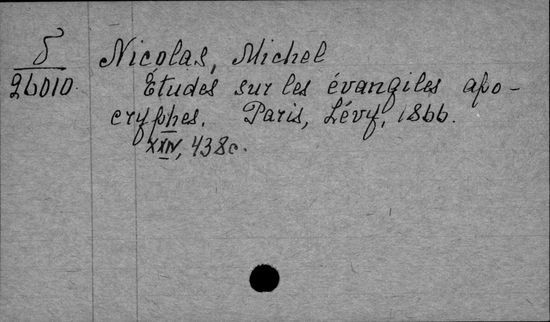 δ
26010
Nicolas, Michel
Études sur les évangiles apo-
cryphes. Paris, Lévy, 1866.
XXIV, 438c.